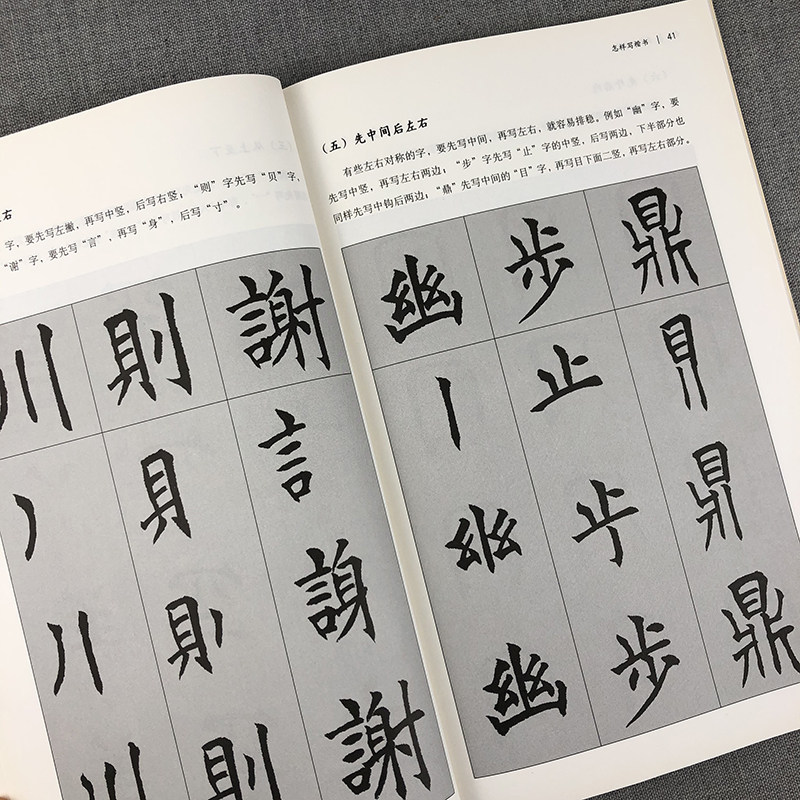 右
字，要先写左撇，再写中竖，后写右竖；“则”字先写“贝”字，
“谢”字，要先写“言”，再写“身”，后写“寸”。
川 則 謝
丿 貝 言
川 則 謝
怎样写楷书 | 41
（五）先中间后左右
有些左右对称的字，要先写中间，再写左右，就容易排稳。例如“幽”字，要
先写中竖，再写左右两边；“步”字先写“止”字的中竖，后写两边，下半部分也
同样先写中钩后两边；“鼎”先写中间的“目”字，再写目下面二竖，再写左右部分。
幽 步 鼎
丨 止
幽 步 鼎